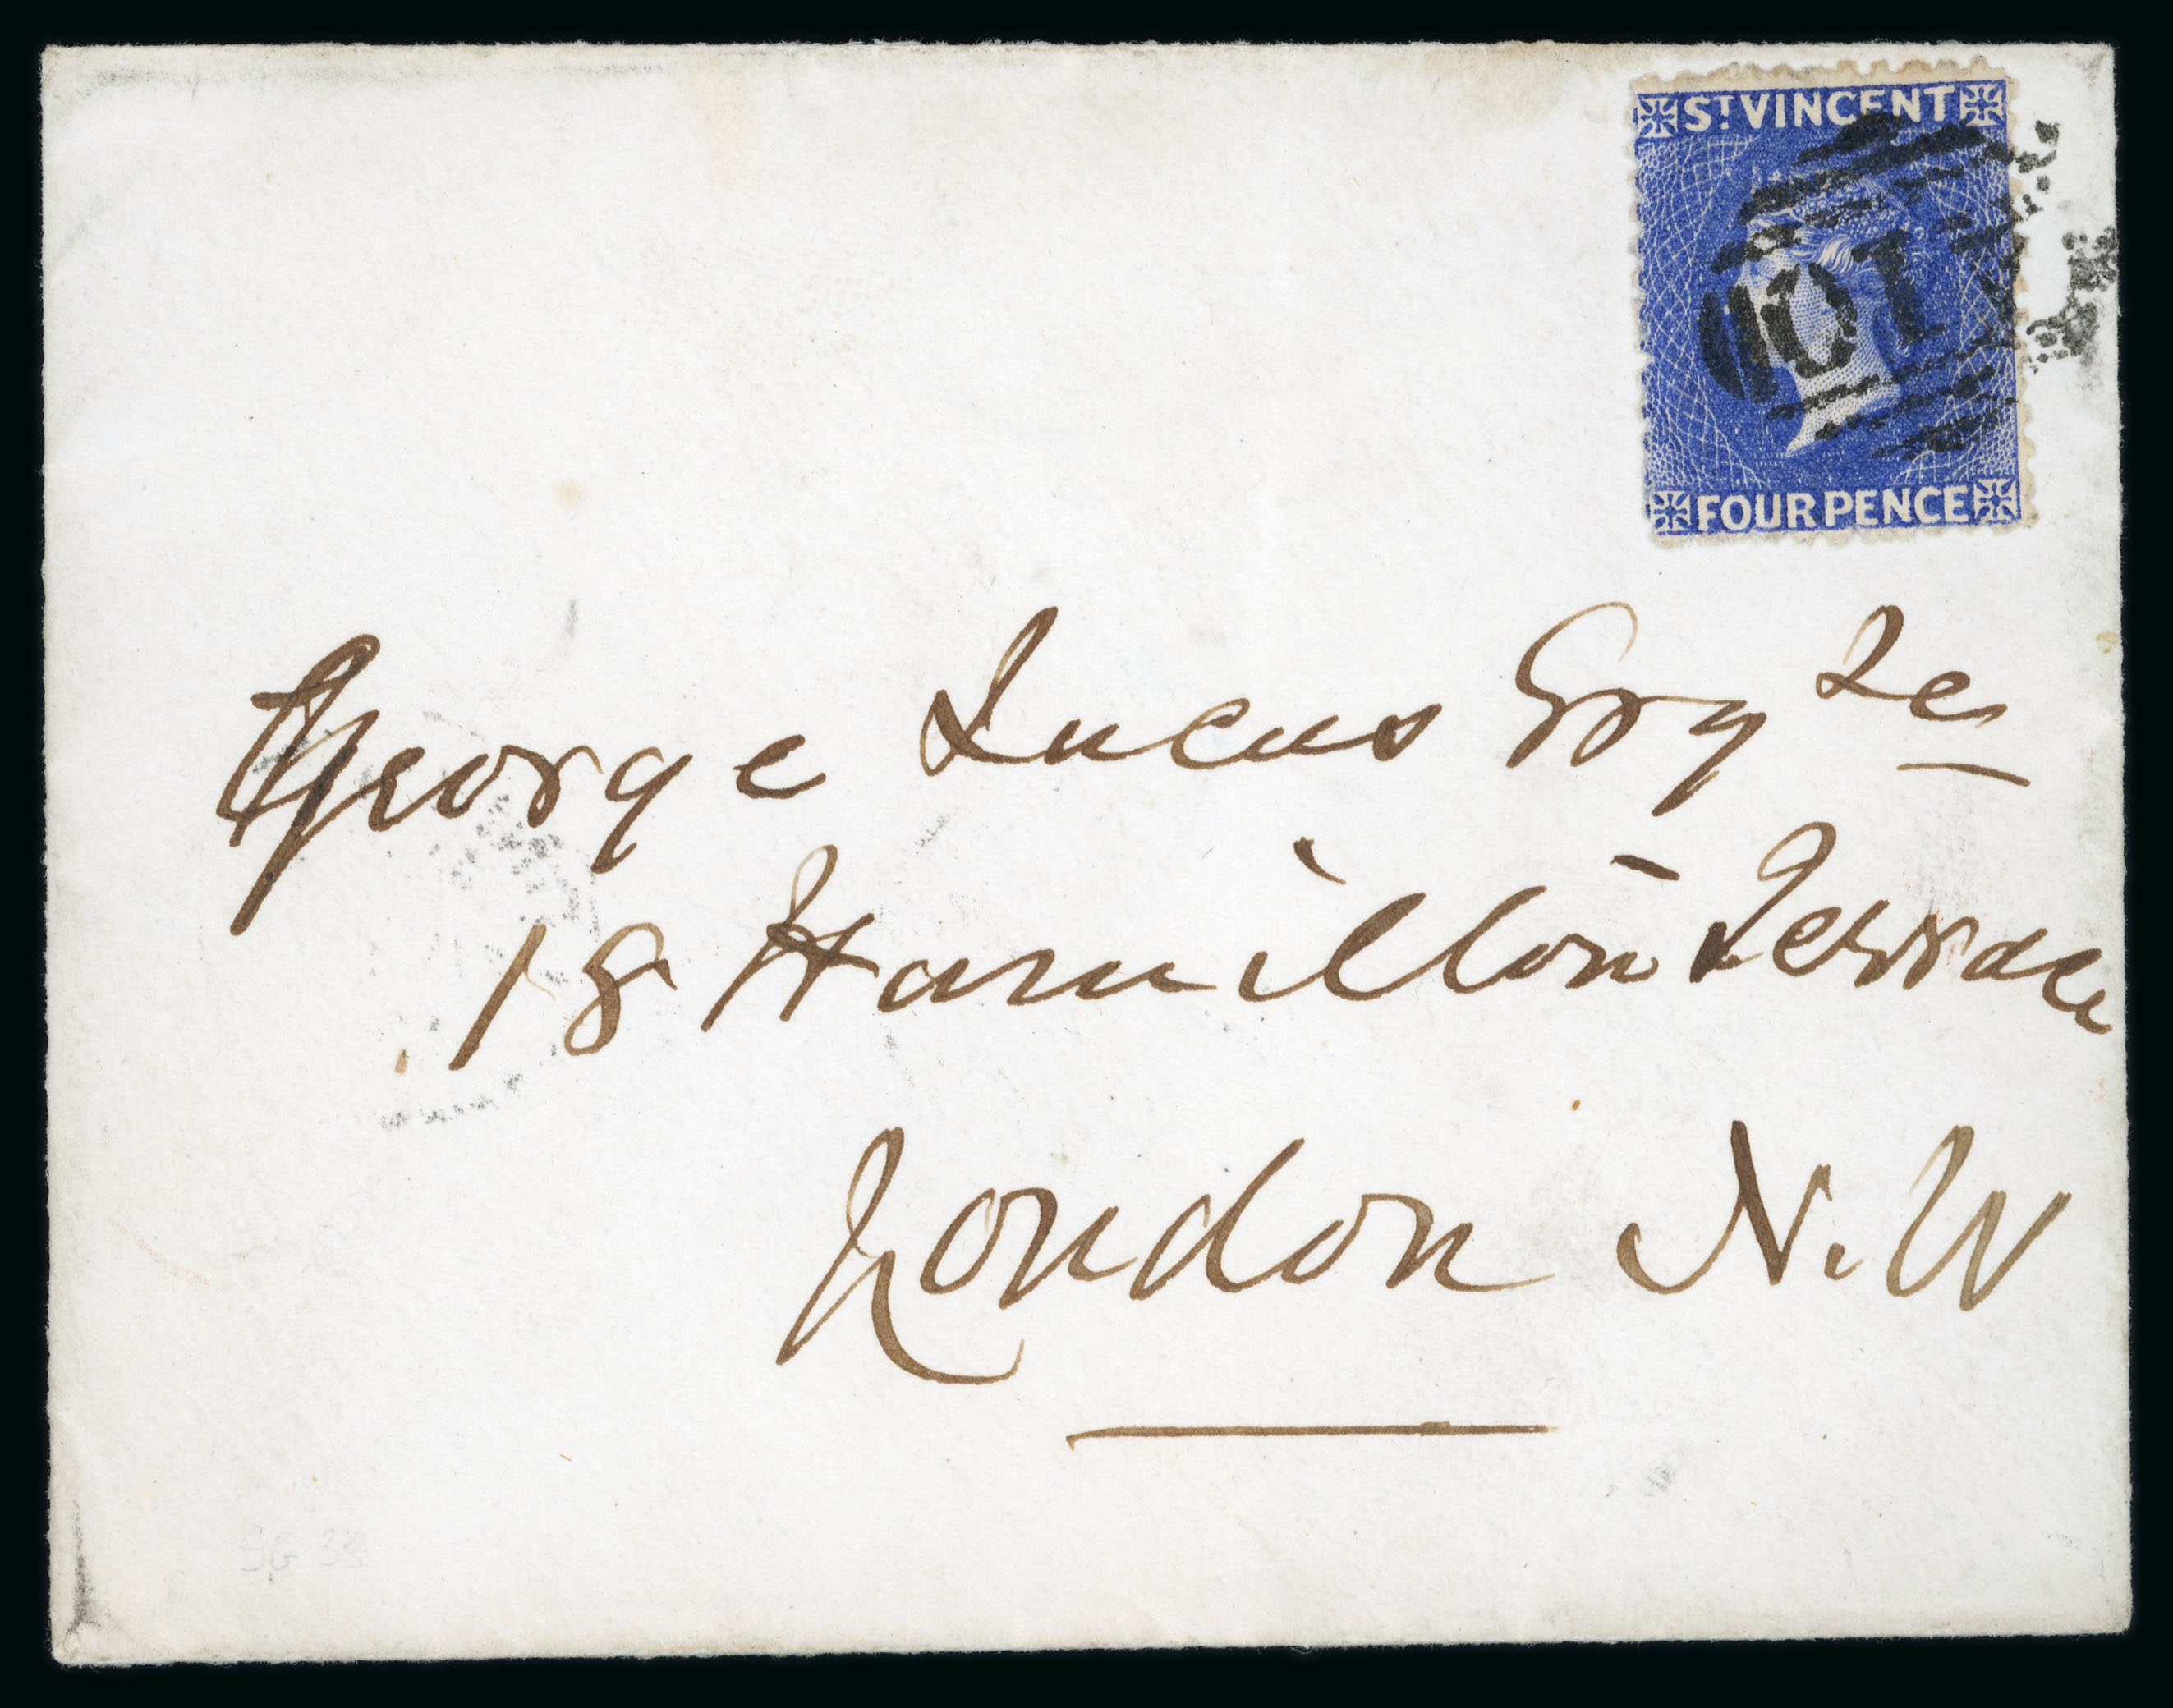 ST VINCENT
FOUR PENCE
George Lucas Esqre
18 Hamilton Terrace
London N.W
SG 38